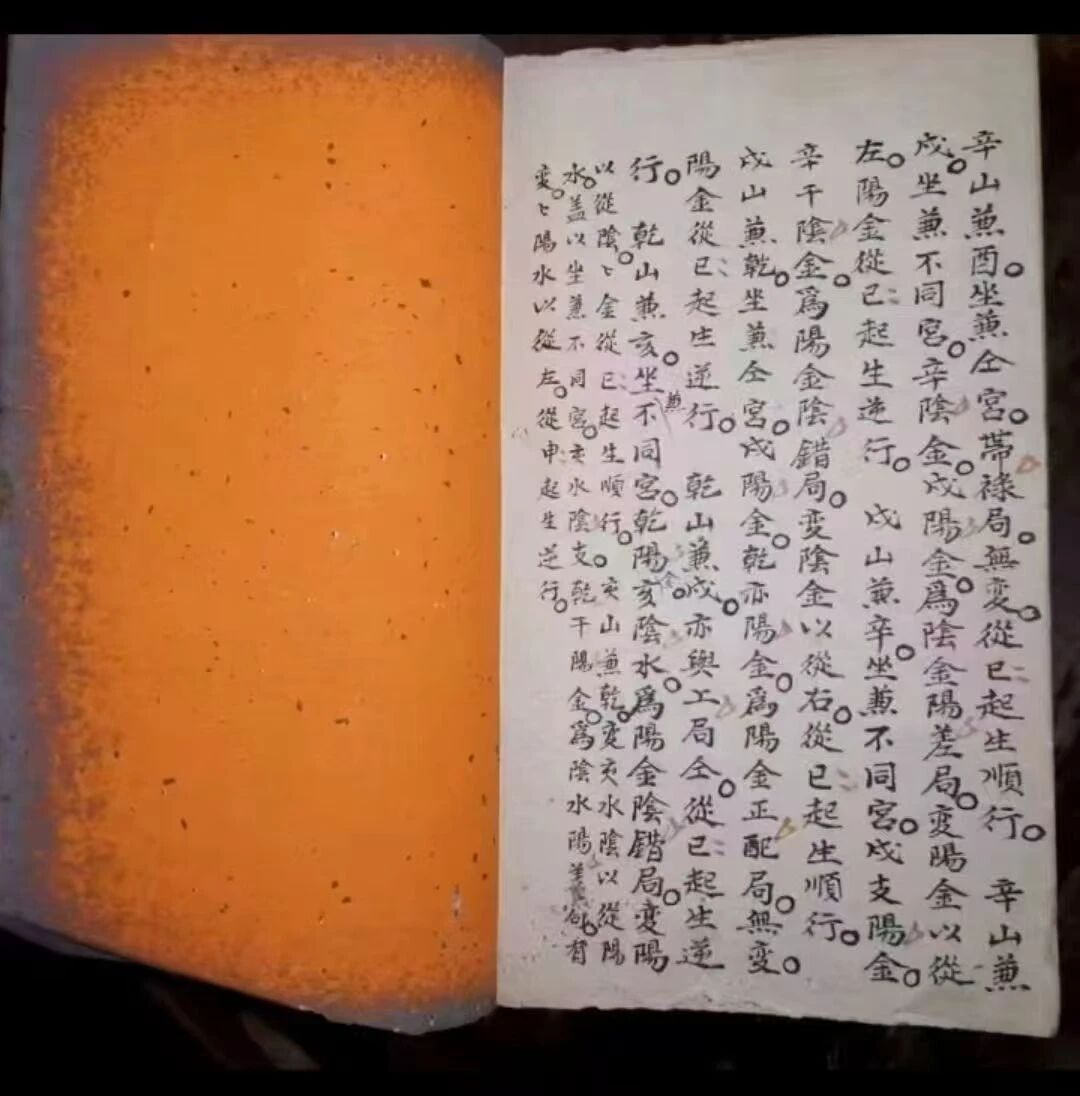 辛山兼酉。坐兼仝宮。帶祿局。無変。從巳起生順行。　辛山兼
戌。坐兼不同宮。辛陰金。戌陽金。爲陰金陽差局。変陽金以從
左。陽金從巳起生逆行。　戌山兼辛。坐兼不同宮。戌支陽金。
辛干陰金。爲陽金陰錯局。変陰金以從右。從巳起生順行。
戌山兼乾。坐兼仝宮。戌陽金。乾亦陽金。爲陽金正配局。無変。
陽金從巳起生逆行。　乾山兼戌。亦與上局仝。從巳起生逆
行。　乾山兼亥。坐兼不同宮。乾陽金。亥陰水。爲陽金陰錯局。変陽
以從陰。〻金從巳起生順行。　亥山兼乾。変亥水陰以從陽
水。盖以坐兼不同宮。亥水陰支。乾干陽金。爲陰水陽差局。
変〻陽水以從左。從申起生逆行。